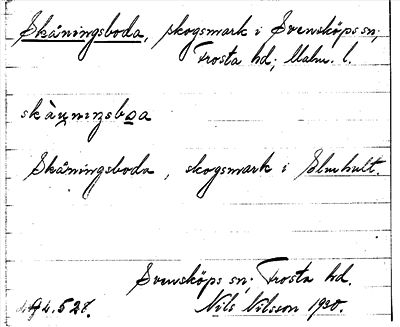 Skåningsboda, skogsmark i Svensköps sn;
Frosta hd; Malm. l.
skàu̯nıŋsboa
Skåningsboda, skogsmark i Elmhult.
Svensköps sn; Frosta hd.
Nils Nilsson 1930.